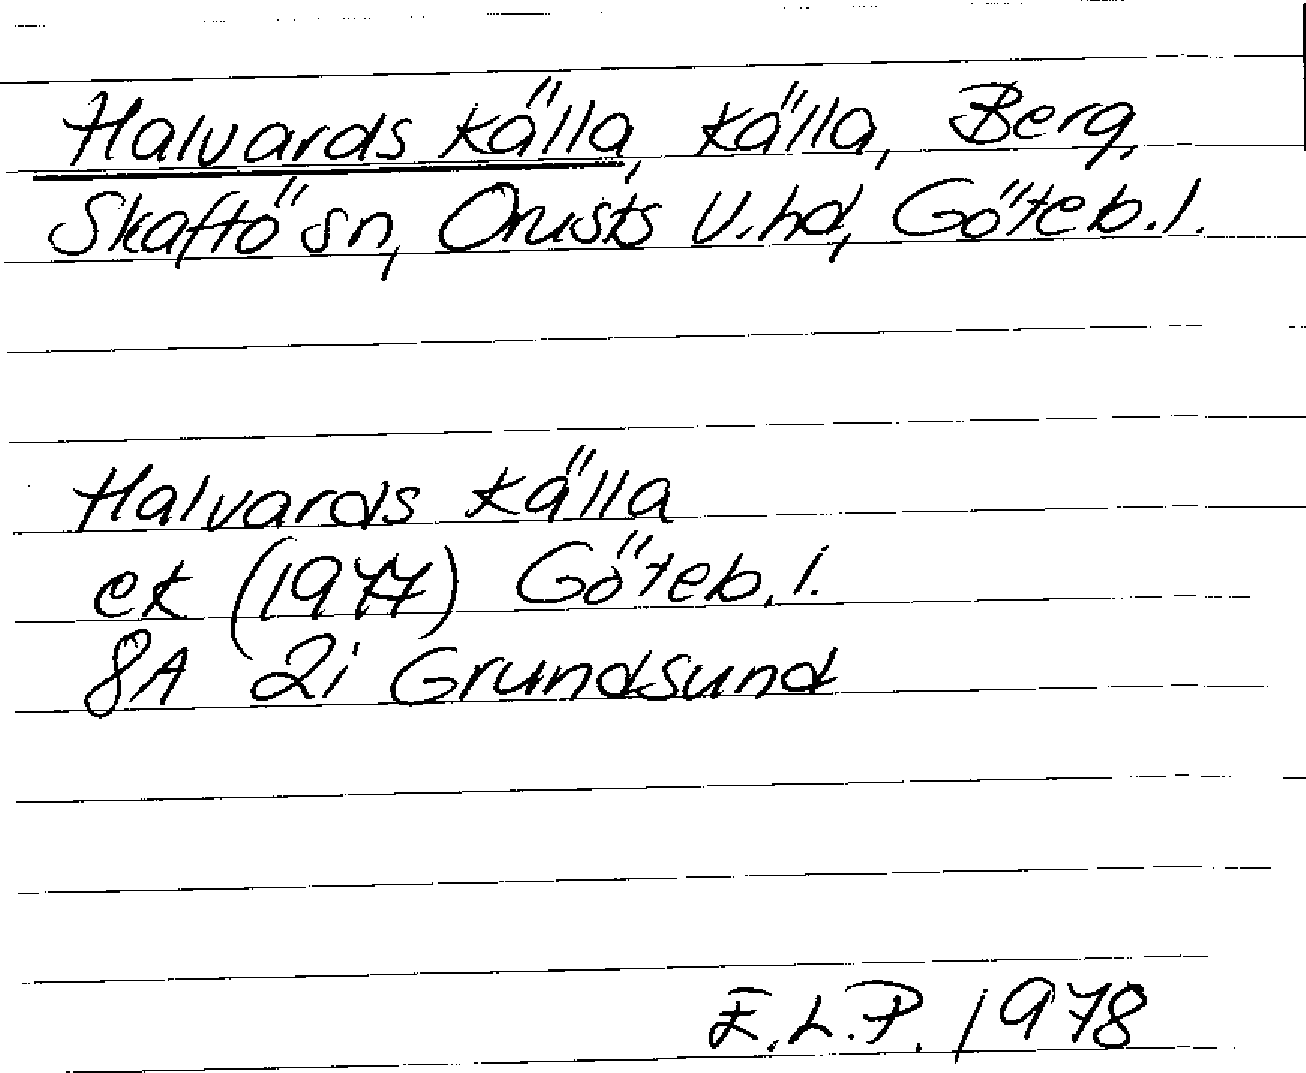 Halvards källa, källa, Berg,
Skaftö sn, Orusts V.hd, Göteb.l.
Halvards källa
ek (1977) Göteb.l.
8A 2i Grundsund
E.L.P. 1978